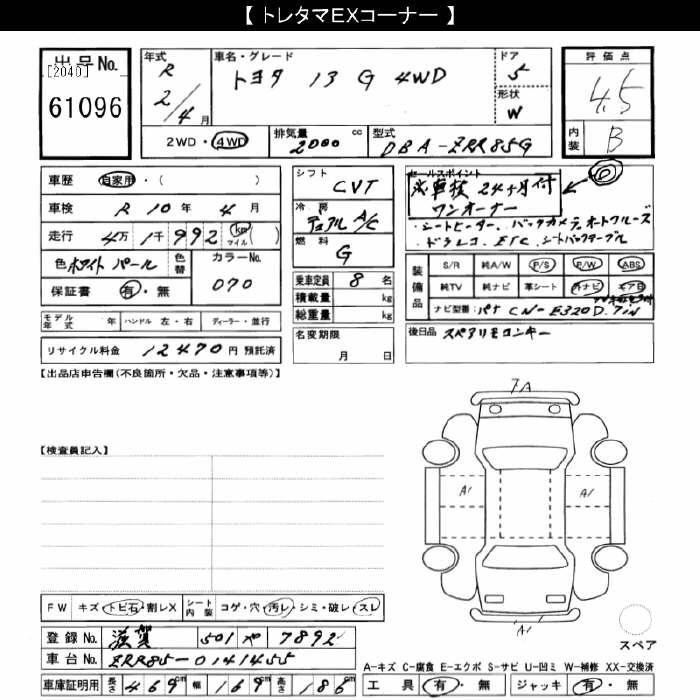 【 トレタマEXコーナー 】
出品No.
[2040]
61096
年式 R 2/4 月
車名・グレード
トヨタ 13 G 4WD
ドア 5
形状 W
2WD・4WD
排気量 2000 cc
型式 DBA-ZRR85G
評価点 4.5
内装 B
車歴 自家用・( )
車検 R 10年 4月
走行 4万 1千 992 km マイル ( )
色 ホワイト パール
色替
カラーNo. 070
保証書 有・無
モデル年式 年 ハンドル 左・右 ディーラー・並行
リサイクル料金 12470 円 預託済
シフト CVT
冷房 デュアル A/C
燃料 G
乗車定員 8 名
積載量 kg
総重量 kg
名変期限 月 日
セールスポイント
24ヶ月付
ワンオーナー
・シートヒーター、バックカメラ、オートクルーズ
・ドラレコ、ETC、シートバックテーブル
装備品
S/R 純A/W P/S P/W ABS
純TV 純ナビ 革シート 外ナビ エアB
ナビ型番: パナ CN-E320D.
後日品 スペアリモコンキー
【出品店申告欄(不良箇所・欠品・注意事項等)】
【検査員記入】
7A
A1 A1
A1
スペア
FW キズ・トビ石・割レX
シート内装 コゲ・穴・汚レ・シミ・破レ・スレ
登録No. 滋賀 501 や 7892
車台No. ZRR85-0141455
車庫証明用 長さ 469cm 幅 169cm 高さ 186cm
A-キズ C-腐食 E-エクボ S-サビ U-凹ミ W-補修 XX-交換済
工具 有・無 ジャッキ 有・無